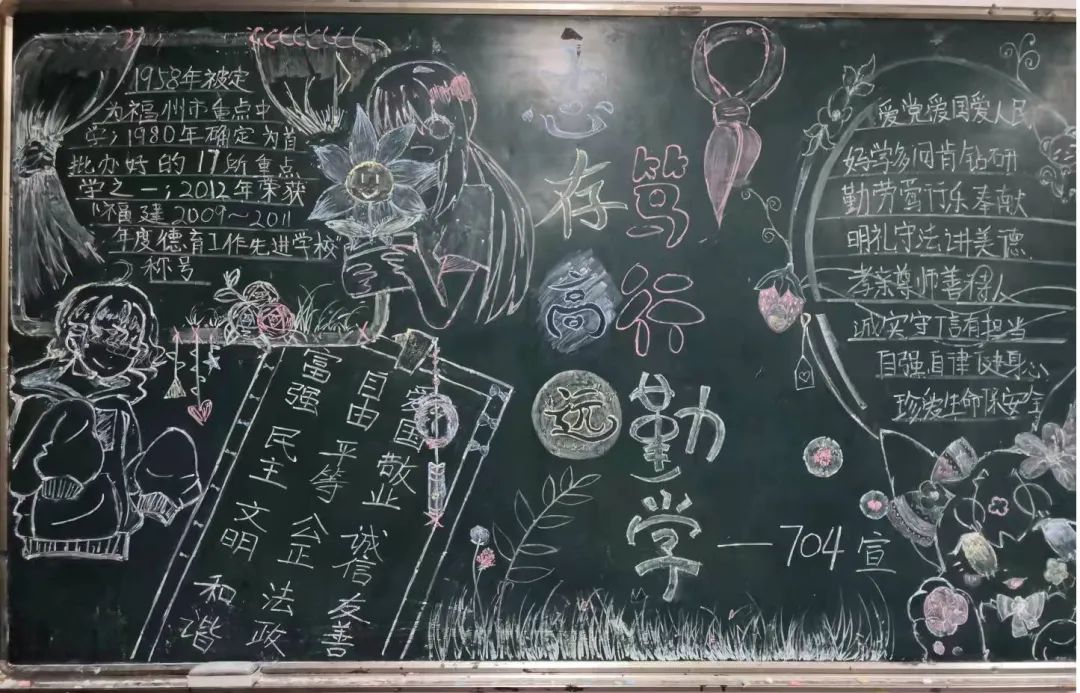 1958年被定
为福州市重点中
学；1980年确定为首
批办好的17所重点
学之一；2012年荣获
“福建2009～2011
年度德育工作先进学校”
称号
富强 民主 文明 和谐
自由 平等 公正 法政
爱国 敬业 诚信 友善
志存高远
笃行勤学
—704宣
爱党爱国爱人民
好学多问肯钻研
勤劳笃行乐奉献
明礼守法讲美德
孝亲尊师善待人
诚实守信有担当
自强自律健身心
珍爱生命保安全